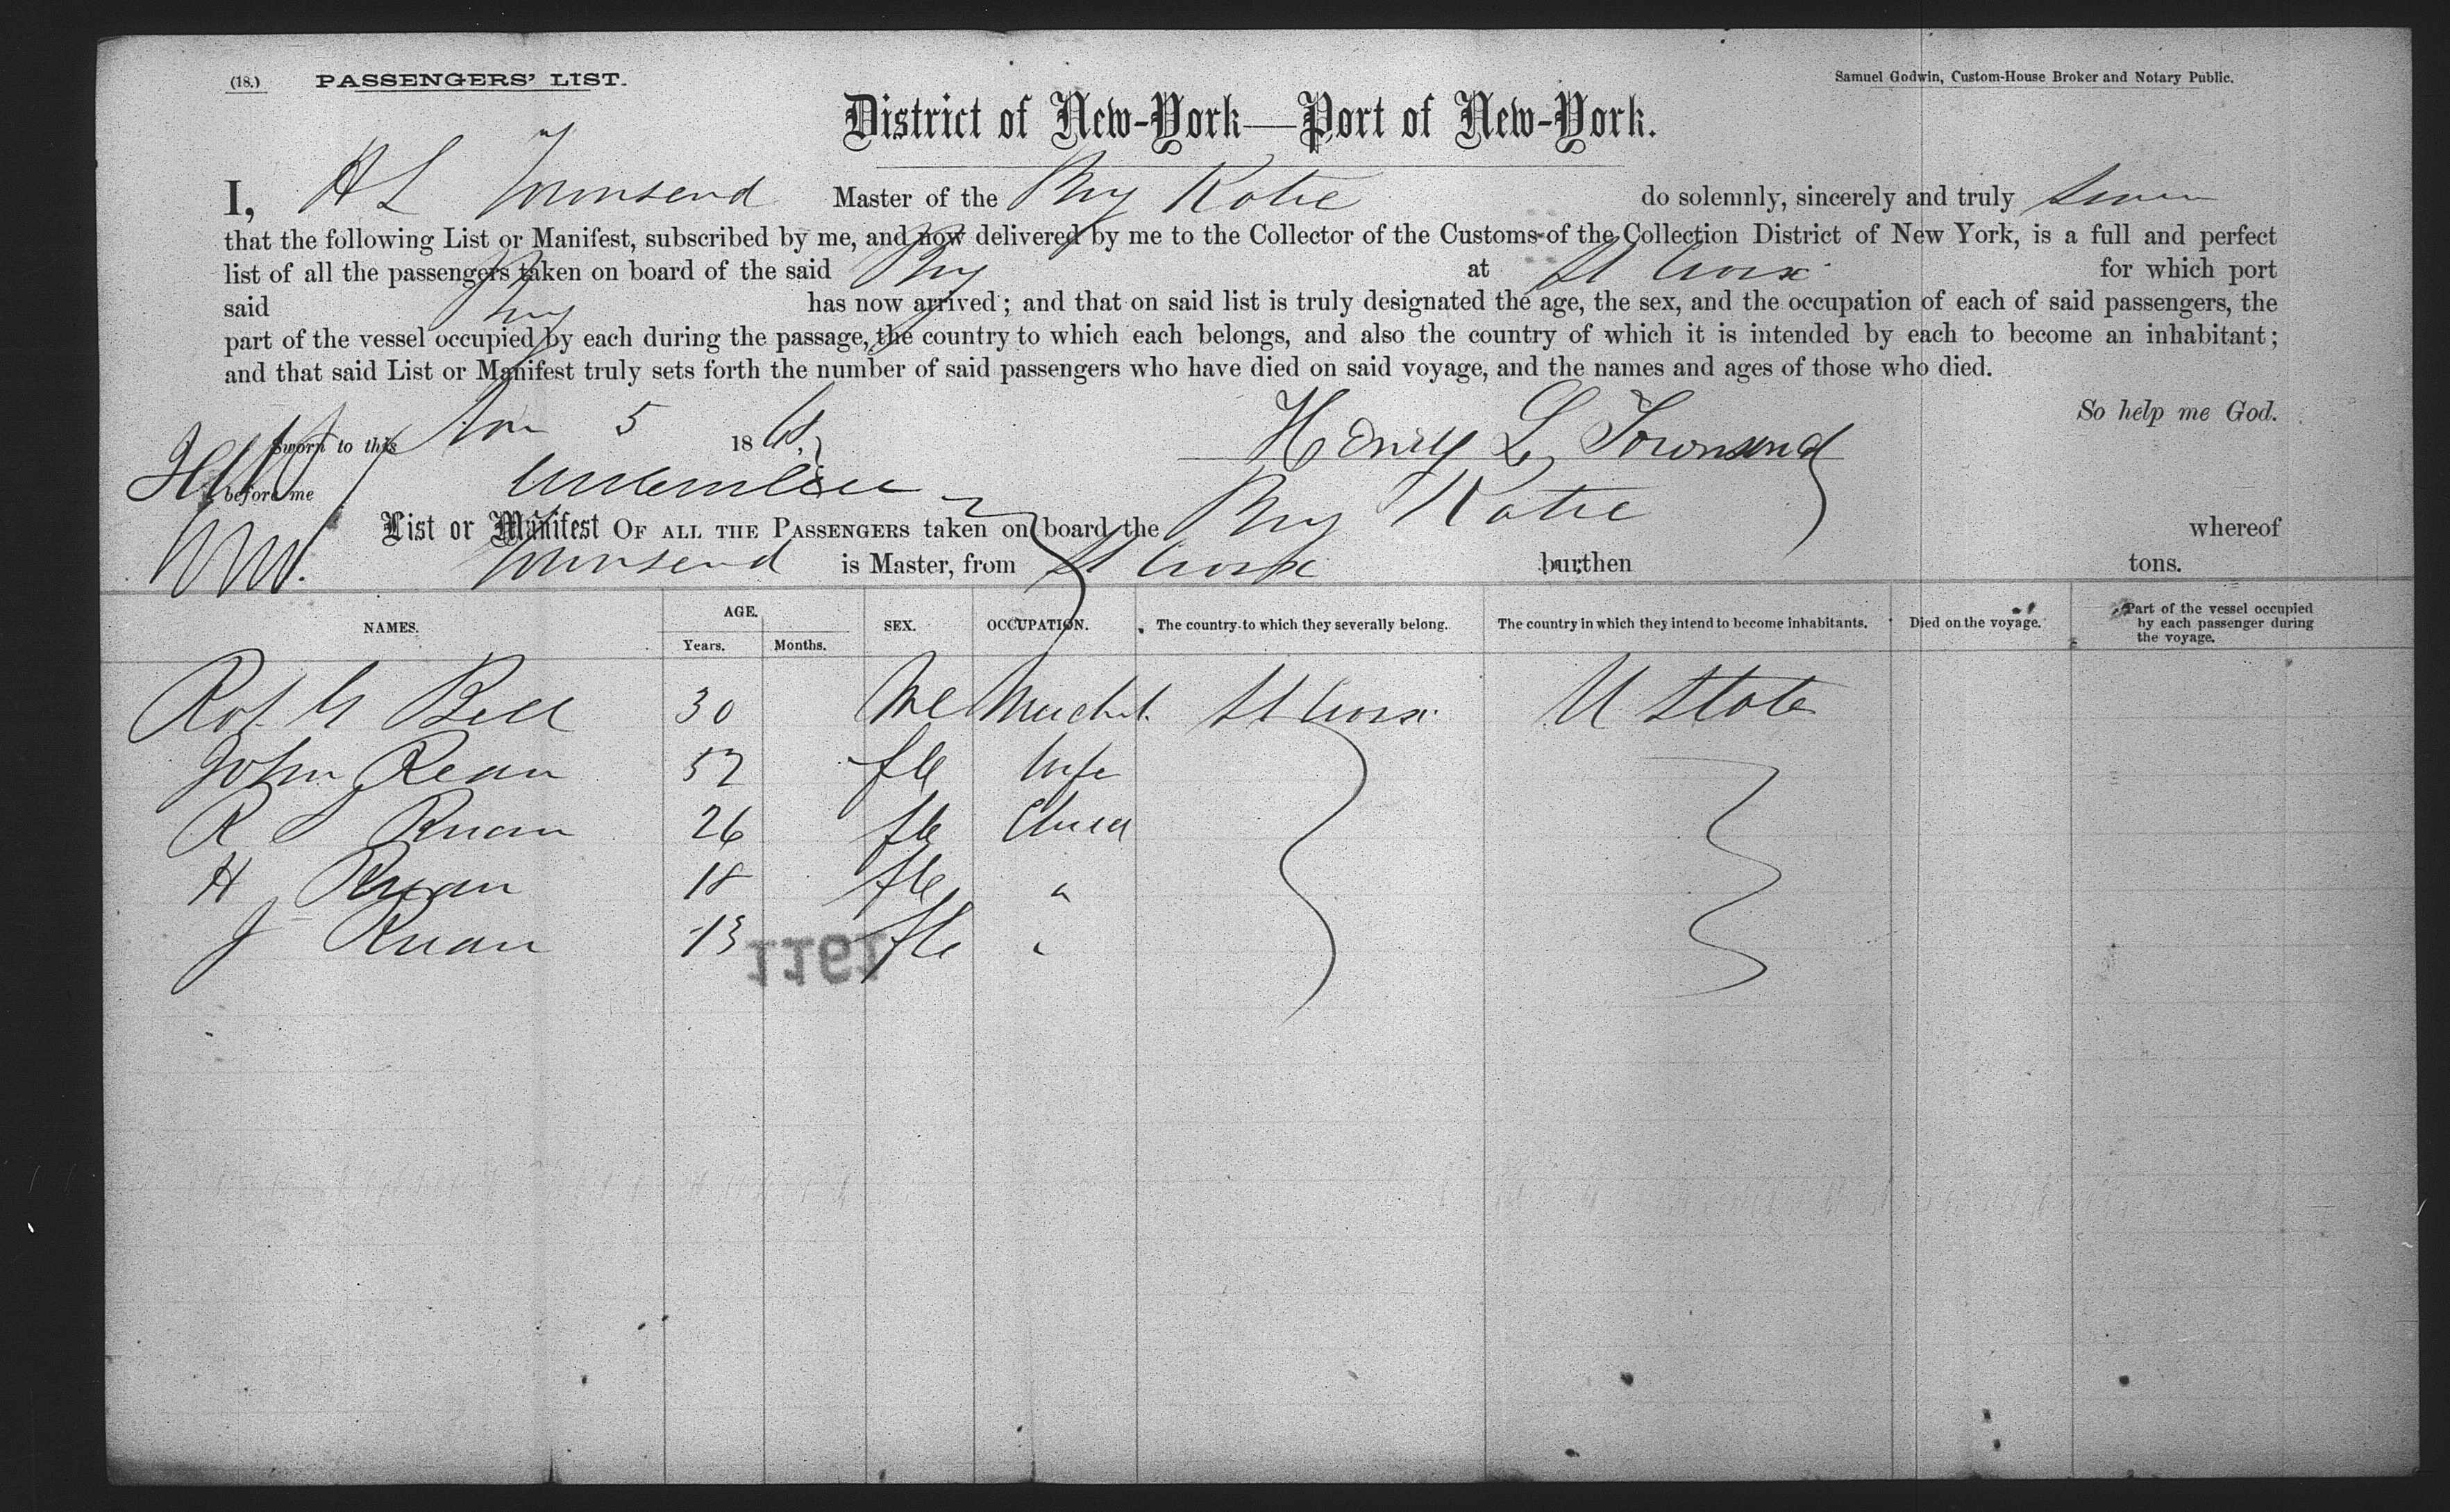 (18.) PASSENGERS' LIST. Samuel Godwin, Custom-House Broker and Notary Public.
District of New-York—Port of New-York.
I, H L Townsend Master of the Brig Katie do solemnly, sincerely and truly swear
that the following List or Manifest, subscribed by me, and now delivered by me to the Collector of the Customs of the Collection District of New York, is a full and perfect
list of all the passengers taken on board of the said Brig at St Croix for which port
said Brig has now arrived; and that on said list is truly designated the age, the sex, and the occupation of each of said passengers, the
part of the vessel occupied by each during the passage, the country to which each belongs, and also the country of which it is intended by each to become an inhabitant;
and that said List or Manifest truly sets forth the number of said passengers who have died on said voyage, and the names and ages of those who died.
So help me God.
Sworn to this Nov 5 1868 Henry L Townsend
before me
List or Manifest OF ALL THE PASSENGERS taken on board the Brig Katie whereof
Townsend is Master, from St Croix burthen tons.
NAMES. AGE. Years. Months. SEX. OCCUPATION. The country to which they severally belong. The country in which they intend to become inhabitants. Died on the voyage. Part of the vessel occupied by each passenger during the voyage.
Rob G Bell 30 Me Mercht. St Croix U State
John Rean 52 fle Wife
R S Ruan 26 fle Child
H Ruan 18 fle "
J Ruan 13 fle "
1161